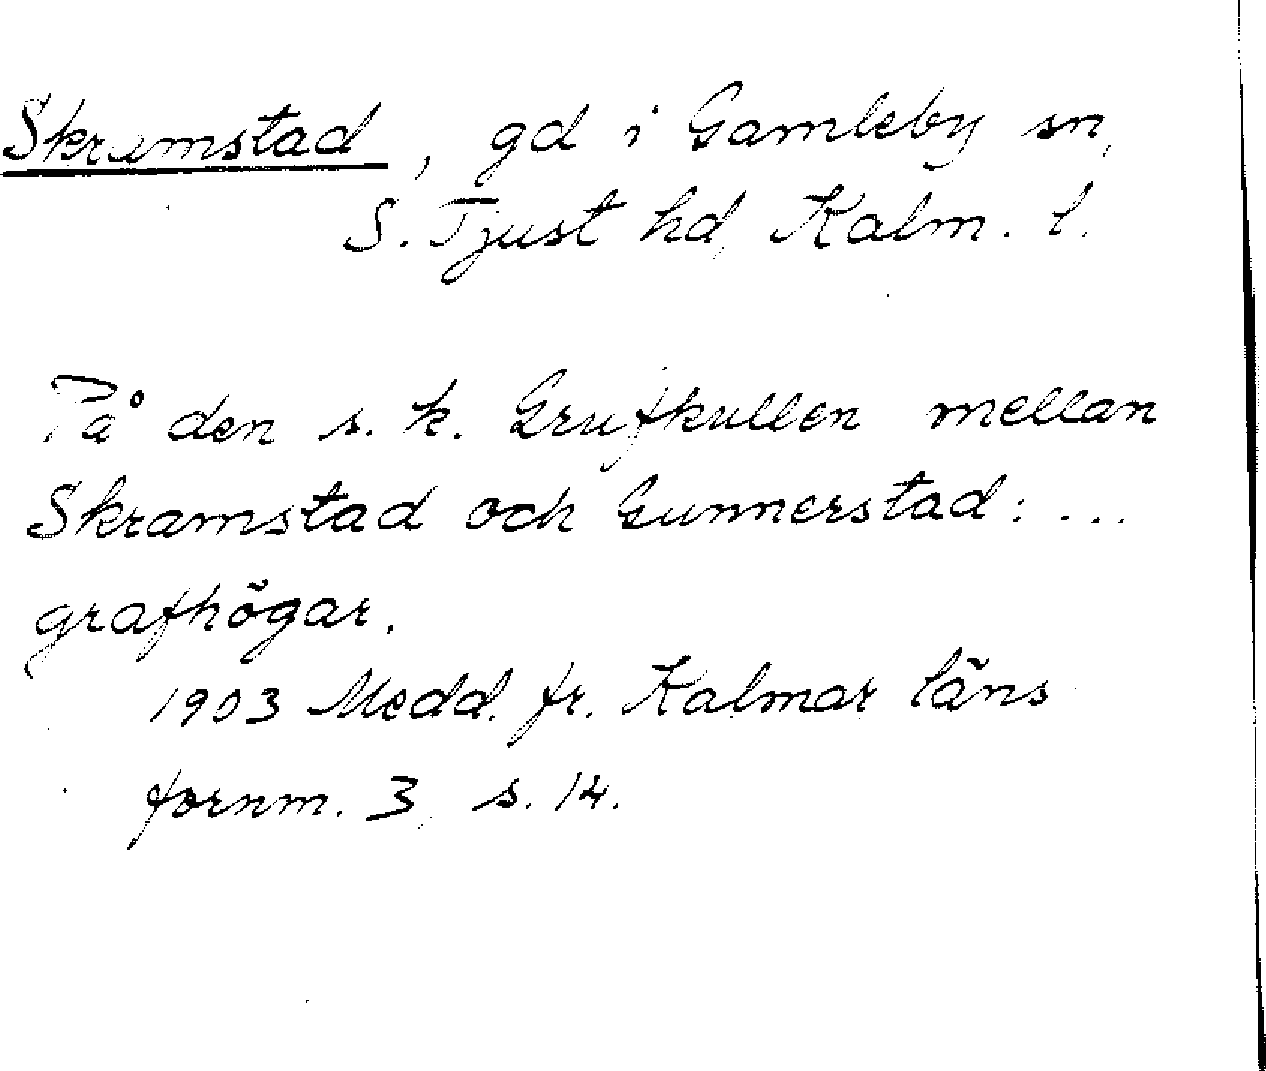 Skramstad, gd i Gamleby sn,
S. Tjust hd, Kalm. l.
På den s. k. Grufkullen mellan
Skramstad och Gunnerstad: ...
grafhögar.
1903 Medd. fr. Kalmar läns
fornm. 3, s. 14.